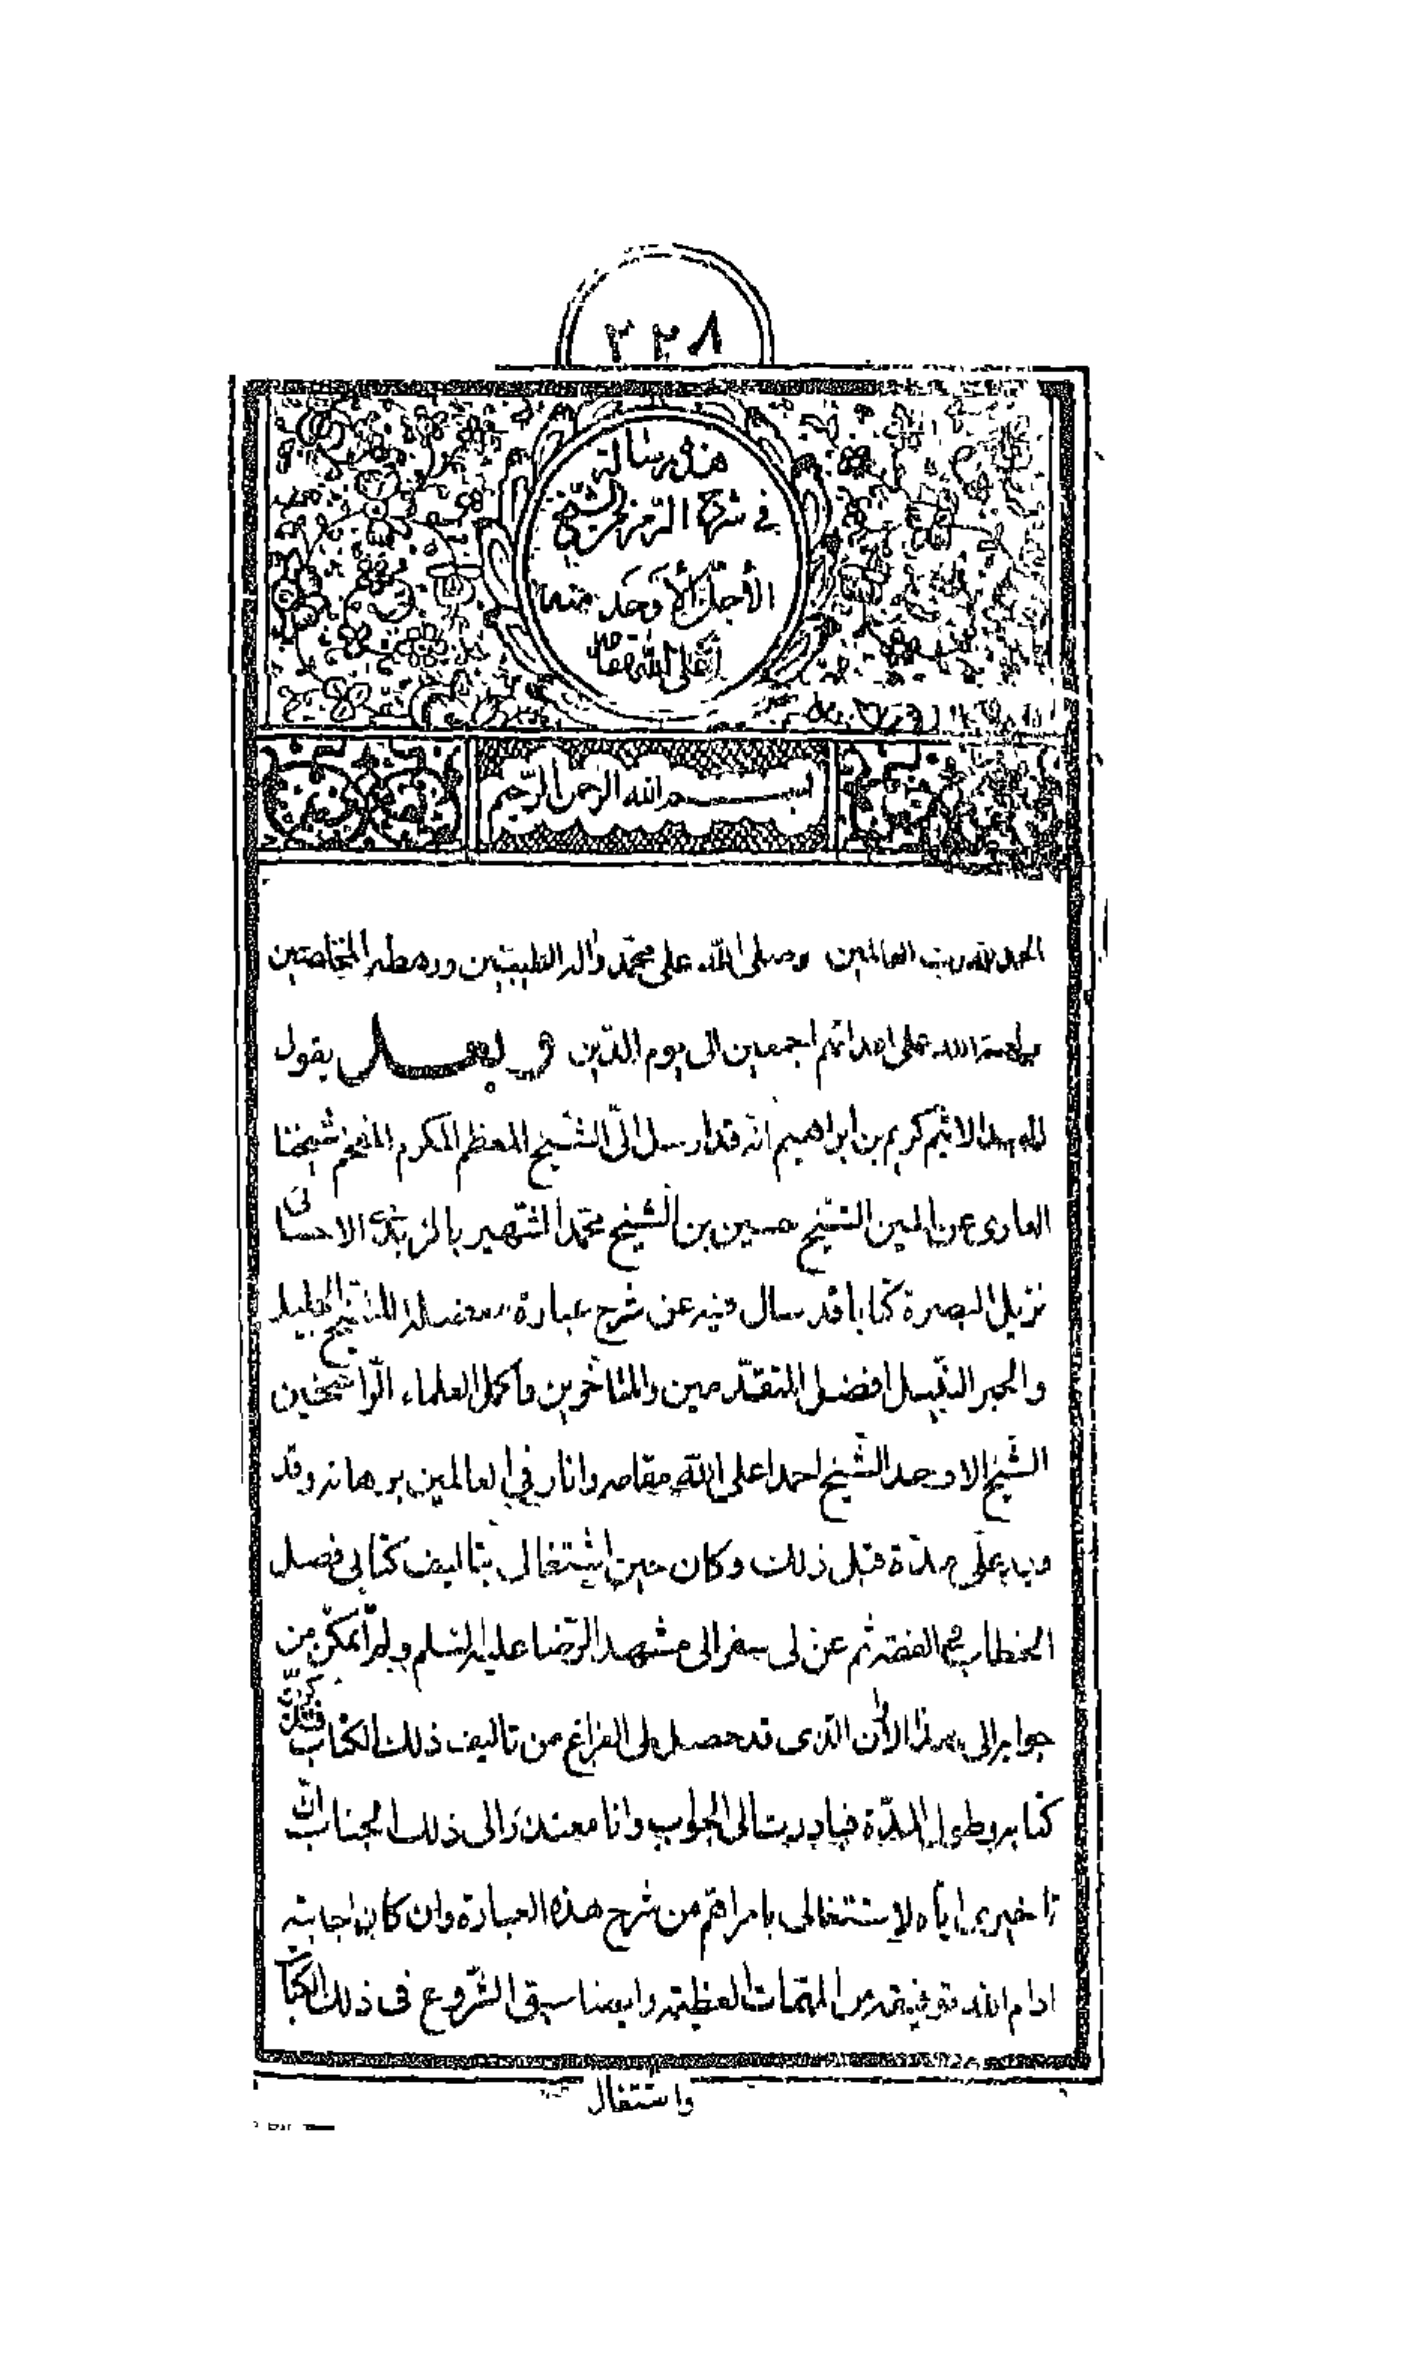 ٣٢٨
هذه رسالة
في شرح الرمز للشيخ
الأجل الأوحد
أعلى الله مقامه
بسم الله الرحمن الرحيم
الحمد لله رب العالمين وصلى الله على محمد واله الطيبين ورهطه المخلصين
ولعنة الله على اعدائهم اجمعين الى يوم الدين وبعد يقول
العبد الاثيم كريم بن ابراهيم انه قد ارسل الىّ الشيخ المعظم المكرم المفخم شيخنا
العارى عن المين الشيخ حسين بن الشيخ محمد الشهير بالمزيدى الاحسائى
نزيل البصرة كتابا قد سال فيه عن شرح عبارة معضلة للشيخ الجليل
والحبر النبيل افضل المتقدمين والمتاخرين واكمل العلماء الراسخين
الشيخ الاوحد الشيخ احمد اعلى الله مقامه وانار في العالمين برهانه وقد
ورد علىّ مدة قبل ذلك وكان حين اشتغالى بتاليف كتابى فصل
الخطاب في الفقه ثم عنّ لى سفر الى مشهد الرضا عليه السلم ولم اتمكن من
جوابه الى هذا الان الذى قد حصل لى الفراغ من تاليف ذلك الكتاب فتذكرت
كتابه وطول المدة فبادرت الى الجواب وانا معتذر الى ذلك الجناب انّ
تاخيرى اياه لاشتغالى بامر اهم من شرح هذه العبارة وان كان اجابته
ادام الله توفيقه من المهمات العظيمة وايضا سبق الشروع فى ذلك الكتاب
واشتغال